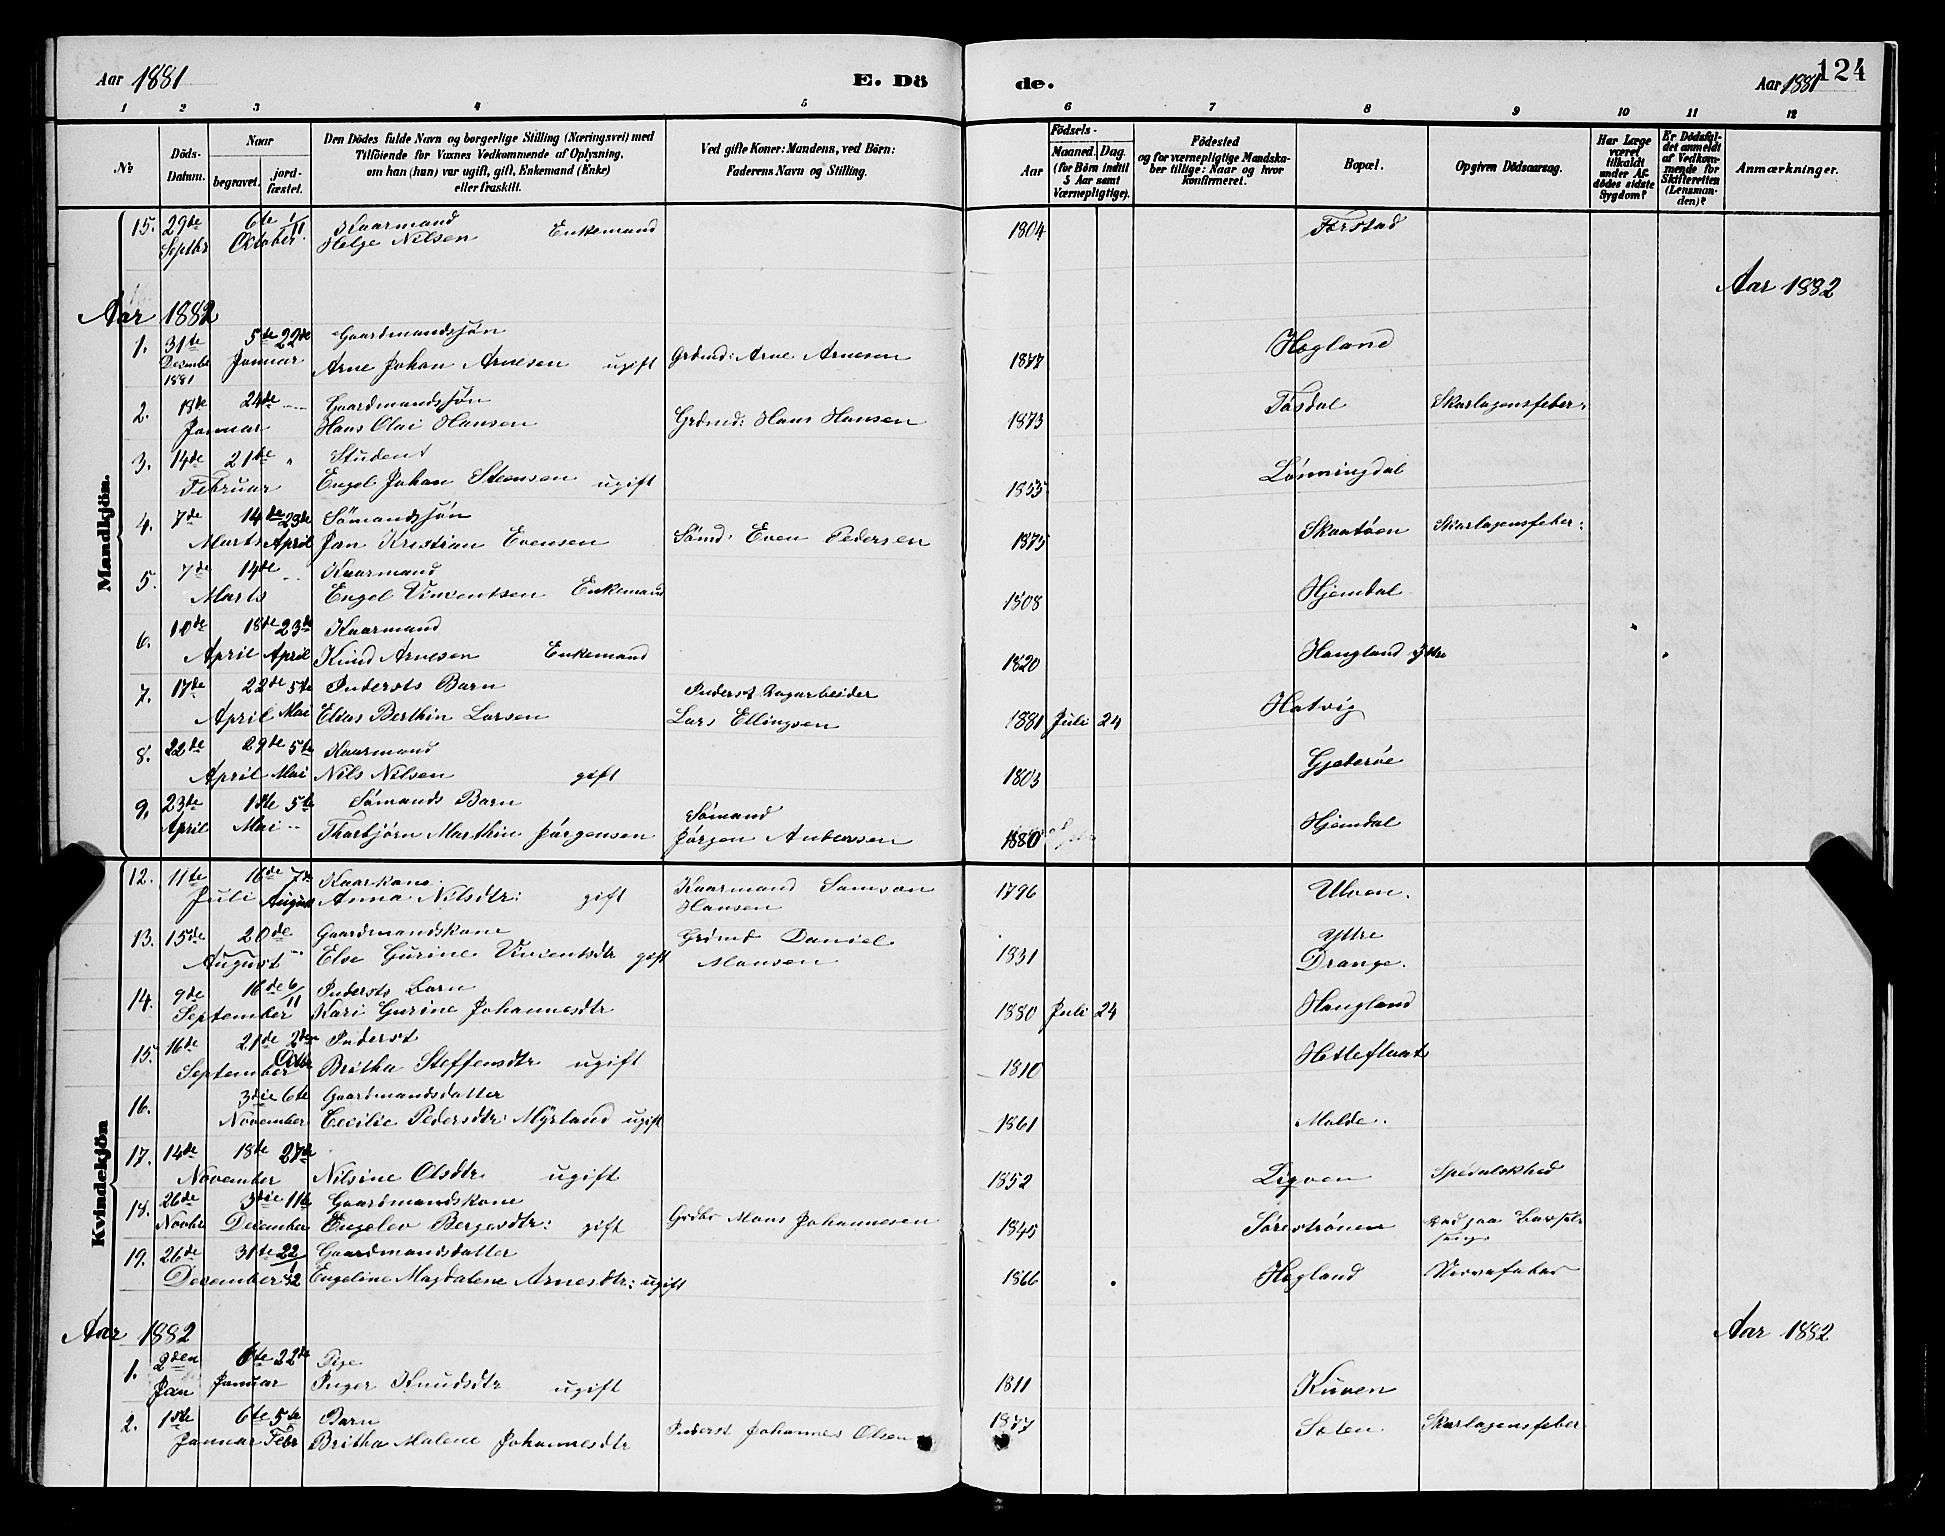 Aar 1881 E. Dö de. Aar 1881 124
1 2 3 4 5 6 7 8 9 10 11 12
No Döds-Datum. Naar begravet. jordfæstet.
Den Dödes fulde Navn og borgerlige Stilling (Næringsvei) med
Tilföiende for Vaxnes Vedkommende af Oplysning,
om han (hun) var ugift, gift, Enkemand (Enke)
eller fraskilt.
Ved gifte Koner: Mandens, ved Börn:
Faderens Navn og Stilling.
Födsels-
Aar Maaned. Dag.
(for Börn indtil
5 Aar samt
Værnepligtige).
Födested
og for værnepligtige Mandska-
ber tillige: Naar og hvor
konfirmeret.
Bopæl.
Opgiven Dödsaarsag.
Har Læge
været
tilkaldt
under Af-
dödes sidste
Sygdom?
Er Dödsfal-
det anmeldt
af Vedkom-
mende for
Skifteretten
(Lensman-
den)?
Anmærkninger.
Mandkjön.
15. 29de 6te 1/11 Kaarmand
Septbr October Helje Nilsen Enkemand 1804 Førstad
Aar 1882 Aar 1882
1. 31te 5te 22de Gaardmandssøn
Desmbr 1881 Januar Arne Johan Arnesen ugift Grdmd: Arne Arnesen 1877 Høgland
2. 18de 24de Gaardmandssøn
Januar Hans Olai Hansen Grdmd: Hans Hansen 1873 Tøsdal Skarlagensfeber
3. 14de 21de " Student
Februar Engel Johan Steensen ugift 1855 Lønningdal
4. 7de 14de 23de Sömandssøn
Marts April Jan Kristian Evensen Sömd: Even Pedersen 1875 Skaatøen Skarlagensfeber
5. 7de 14de Kaarmand
Marts Engel Vincentsen Enkemand 1808 Hjemdal
6. 10de 18de 23de Kaarmand
April April Knud Arnesen Enkemand 1820 Haugland ytre
7. 17de 22de 5te Indersts Barn Inderst Dagarbeider
April Mai Elias Berthin Larsen Lars Ellingsen 1881 Juli 24 Hatvig
8. 22de 29de 5te Kaarmand
April Mai Nils Nilsen gift 1803 Gjederøe
9. 23de 1ste 5te Sømands Barn Sømand
April Mai Thorbjørn Marthin Jørgensen Jørgen Andersen 1880 Hjemdal
Kvindekjön
12. 11te 16de 7de Kaarkone Kaarmand Samson
Juli August Anna Nilsdtr: gift Hansen 1796 Ulven.
13. 15de 20de Gaardmandskone Grdmd Daniel
August Else Gurine Vincentsdtr gift Monsen 1831 Yttre Drange.
14. 9de 16de 6/11 Indersts Barn
September Kari Gurine Johannesdtr 1880 Juli 24 Haugland
15. 16de 21de 2den Inderst
September Octbr Britha Steffensdtr ugift 1810 Hetleflaat
16. 3die 6te Gaardmandsdatter
November Cecilie Pedersdtr: Myrland ugift 1861 Malde.
17. 14de 18de 27de
November Nilsine Olsdtr ugift 1852 Ligven Spedalskhed
18. 26de 3die 11te Gaardmandskone
Novbr December Engelev Bergesdtr: gift Grdbr Mons Johannesen 1845 Sørestrønen Død paa Barsel-
seng
19. 26de 31te 22/1 Gaardmandsdatter
December 82 Engeline Magdalene Arnesdtr: ugift 1866 Høgland Nervefeber
Aar 1882 Aar 1882
1. 2den 6te 22de Pige
Jan Januar Inger Knudsdtr ugift 1811 Kuven
2. 1ste 6te 5te Barn
Januar Febr Britha Malene Johannesdtr Inderst Johannes Olsen 1877 Solen Skarlagensfeber